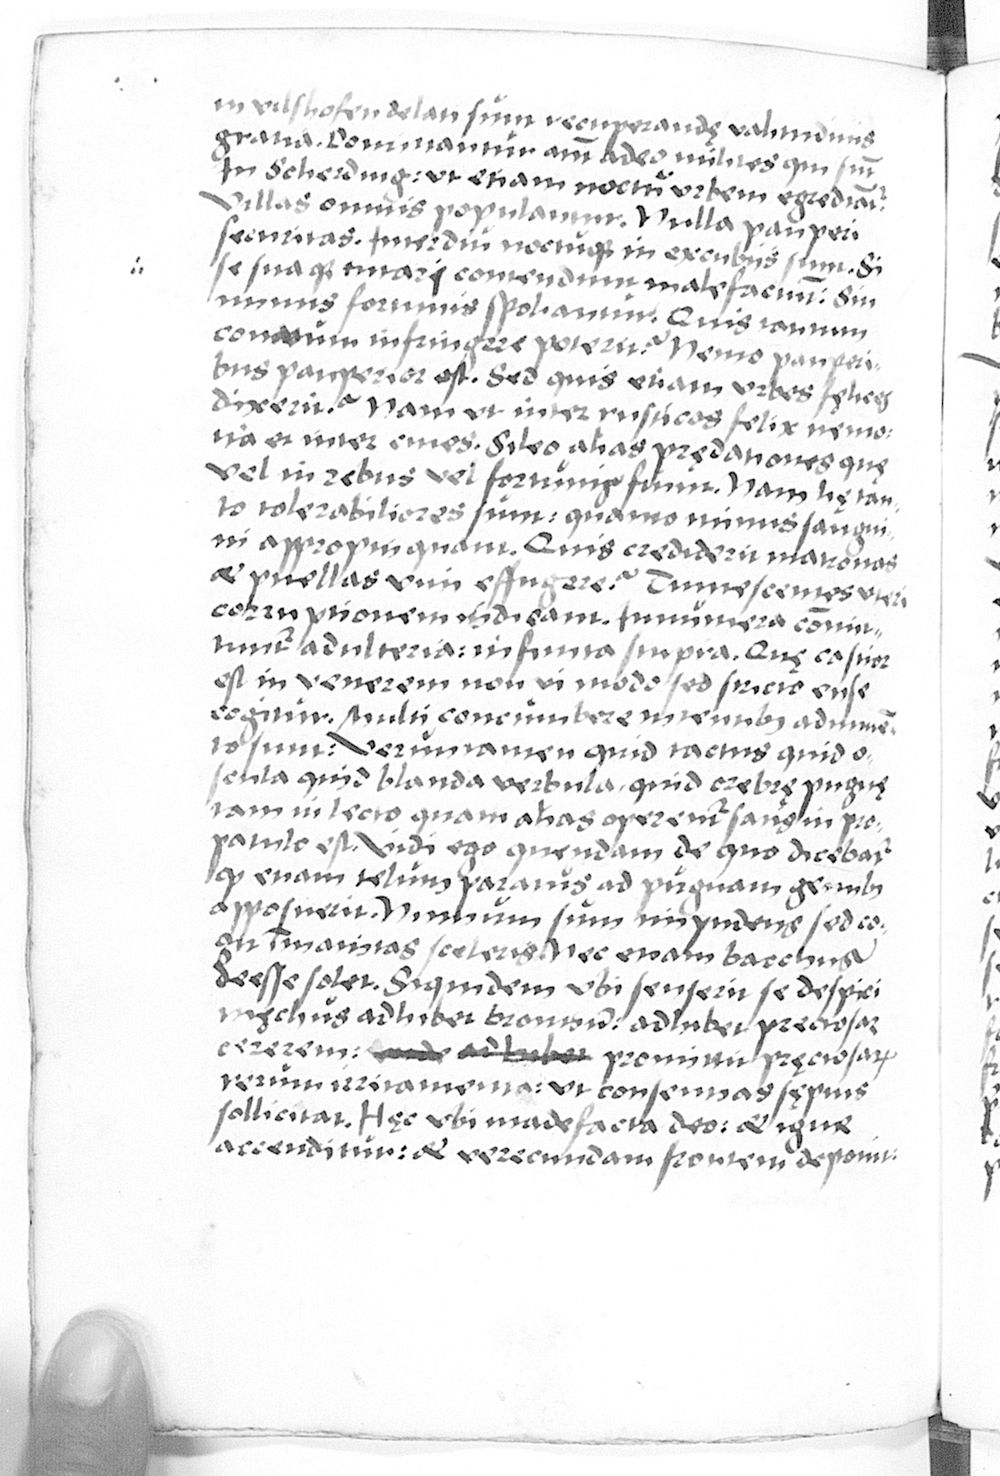 in vilshofen delati sunt recuperandę valitudinis
gratia. Dominantur aūt adeo milites qui sūt
In Scherding: vt etiam noctu vrbem egrediātᷣ:
Villas omnis populantur. Nulla pauperi
securitas. Interdiu noctuqꝫ in excubiis sunt. Si
se suaqꝫ tutari contendunt malefaciūt: Sin
minus fortunis spoliantur. Quis tantum
conatum infringere poterit? Nemo pauperi-
bus pauperior est. Sed quis etiam vrbes fęlices
dixerit? Nam vt inter rusticos felix nemo:
ita et inter ciues. Sileo alias prędationes quę
vel in rebus vel fortunis fiunt. Nam hę tan-
to tolerabiliores sunt: quanto minus sangui-
ni appropinquant. Quis crediderit matronas
& puellas vim effugere? Tumescentes vteri
corruptionem indicant. Innumera cōmit-
tuntᷣ adulteria: infinita stupra. Quę castior
est in venerem non vi modo sed stricto ense
cogitur. Multi concumbere
to sunt: Verumtamen quid tactus quid o-
scula quid blanda verbula, quid crebrę pugnę
tam in lecto quam alias operentᷣ satis in pro-
patulo est. Vidi ego quendam de quo dicebatᷣ
ꝙ etiam telum paratus ad pugnam genibꝫ
apposuerit. Nimium sum impudens sed co-
git īmanitas sceleris. Nec etiam bacchus
deesse solet. Siquidem vbi senserit se despici
męchus adhibet bromiū: adhibet preciosam
cererem: promittit pręciosaꝝ
rerum irritamenta: vt consentias sępius
sollicitat. Hęc vbi madefacta deo: & igne
accenditur: & verecundam frontem deponit: